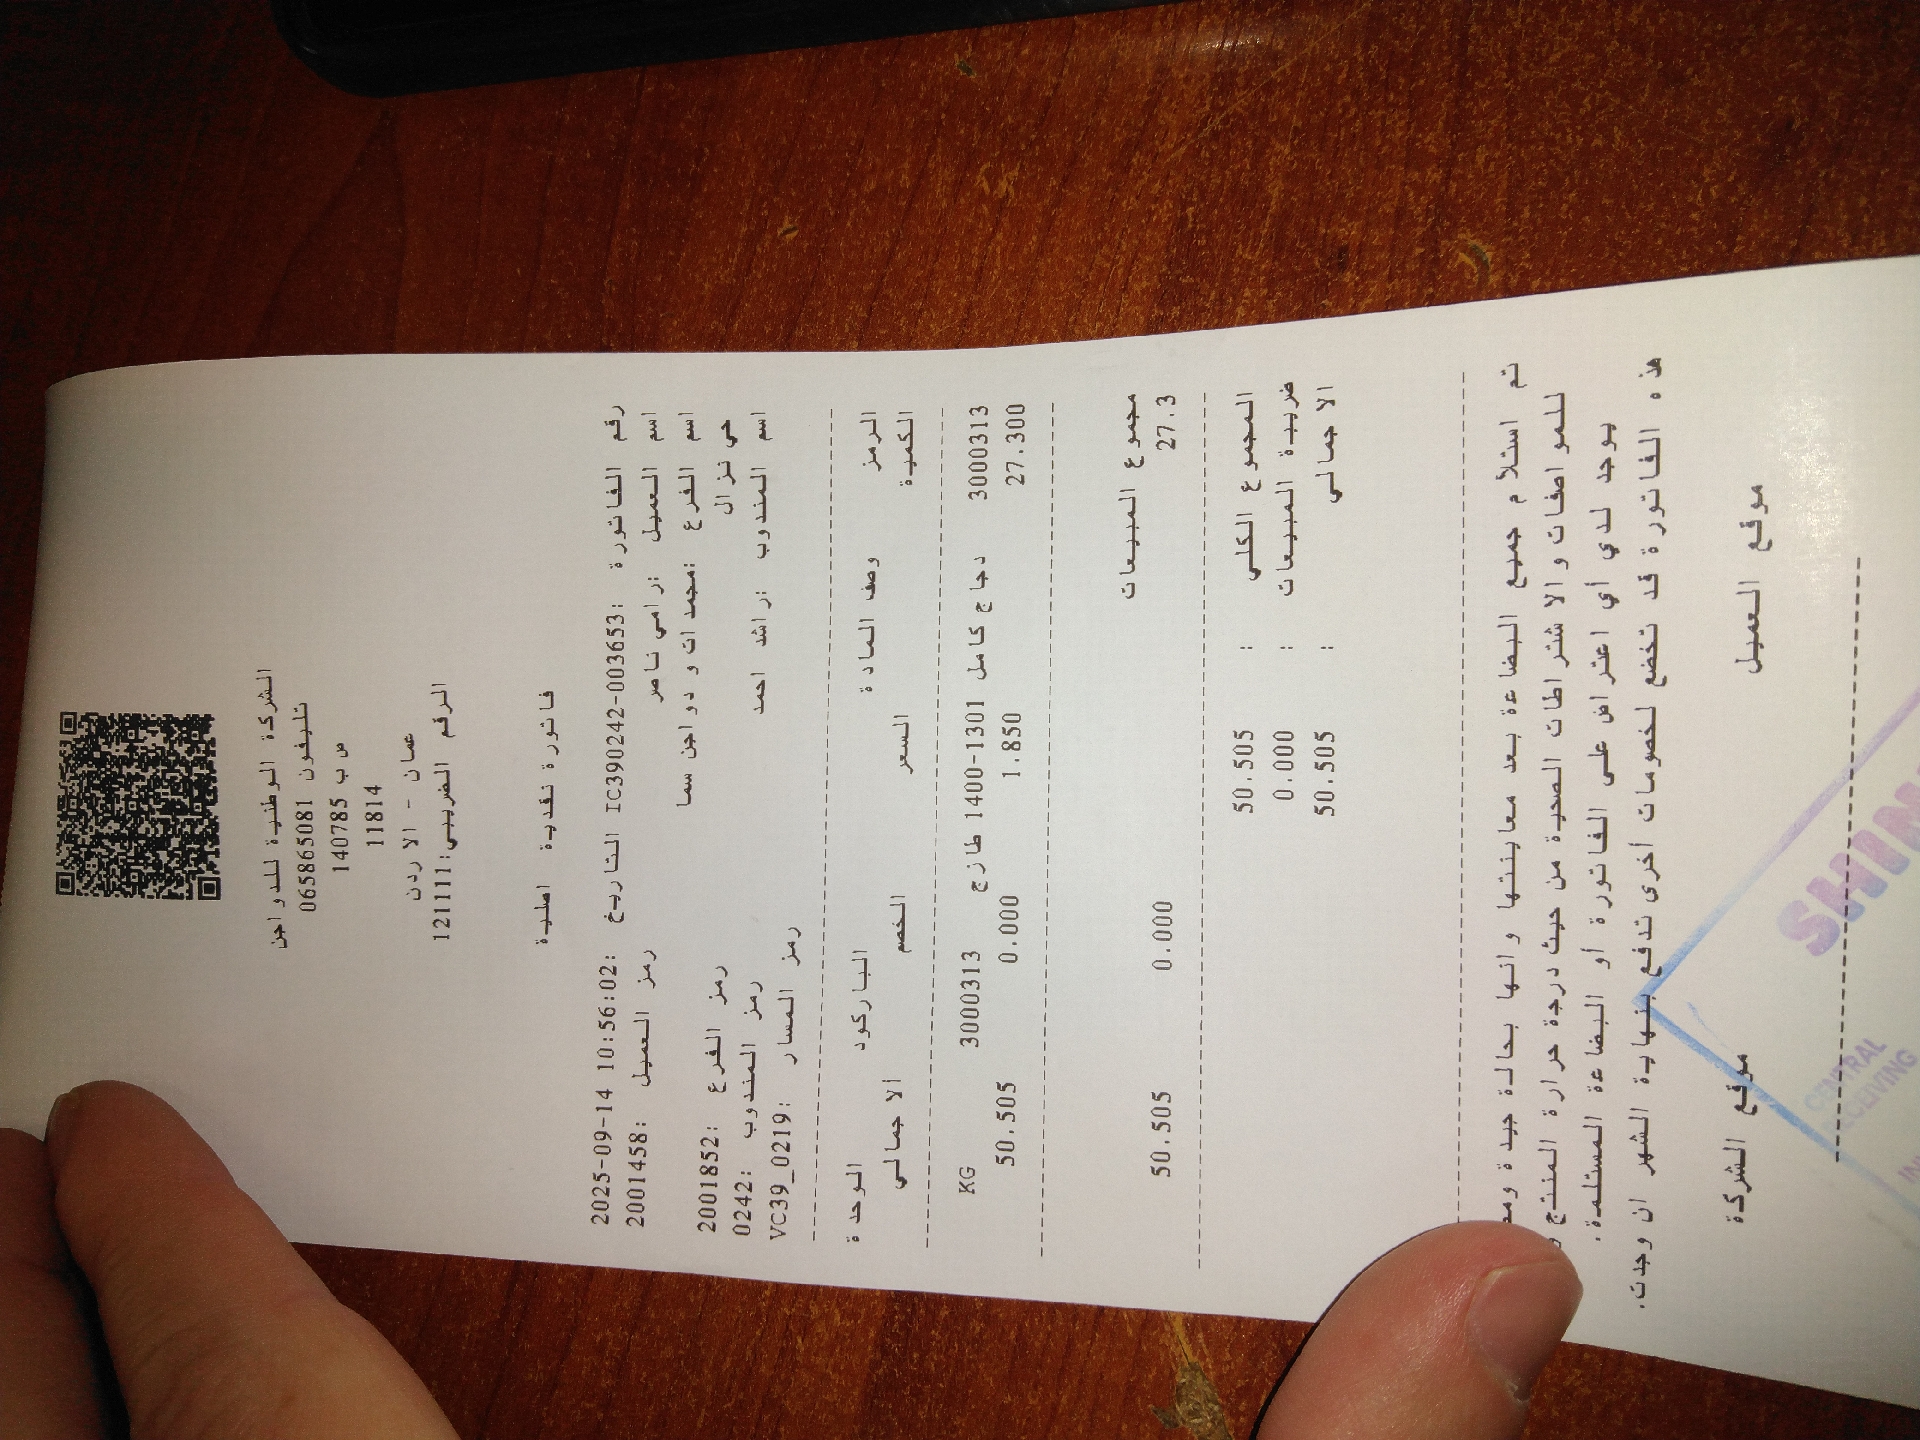 الشركة الوطنية للدواجن
تليفون 065865081
ص ب 140785
11814
عمان - الاردن
الرقم الضريبي:121111
فاتورة نقدية اصلية
رقم الفاتورة :IC390242-003653 التاريخ :2025-09-14 10:56:02
اسم العميل :رامي ناصر رمز العميل :2001458
اسم الفرع :مجمدات و دواجن سما
حي نزال رمز الفرع :2001852
اسم المندوب :راشد احمد رمز المندوب :0242
رمز المسار :VC39_0219
الرمز وصف المادة الباركود الوحدة
الكمية السعر الخصم الاجمالي
3000313 دجاج كامل 1301-1400 طازج 3000313 KG
27.300 1.850 0.000 50.505
مجموع المبيعات
27.3 0.000 50.505
المجموع الكلي : 50.505
ضريبة المبيعات : 0.000
الاجمالي : 50.505
تم استلام جميع البضاعة بعد معاينتها و انها بحالة جيدة
للمواصفات والاشتراطات الصحية من حيث درجة حرارة المنتج و
يوجد لدي أي اعتراض على الفاتورة أو البضاعة المستلمة.
هذه الفاتورة قد تخضع لخصومات أخرى تدفع بنهاية الشهر ان وجدت.
موقع العميل موقع الشركة
CENTRAL